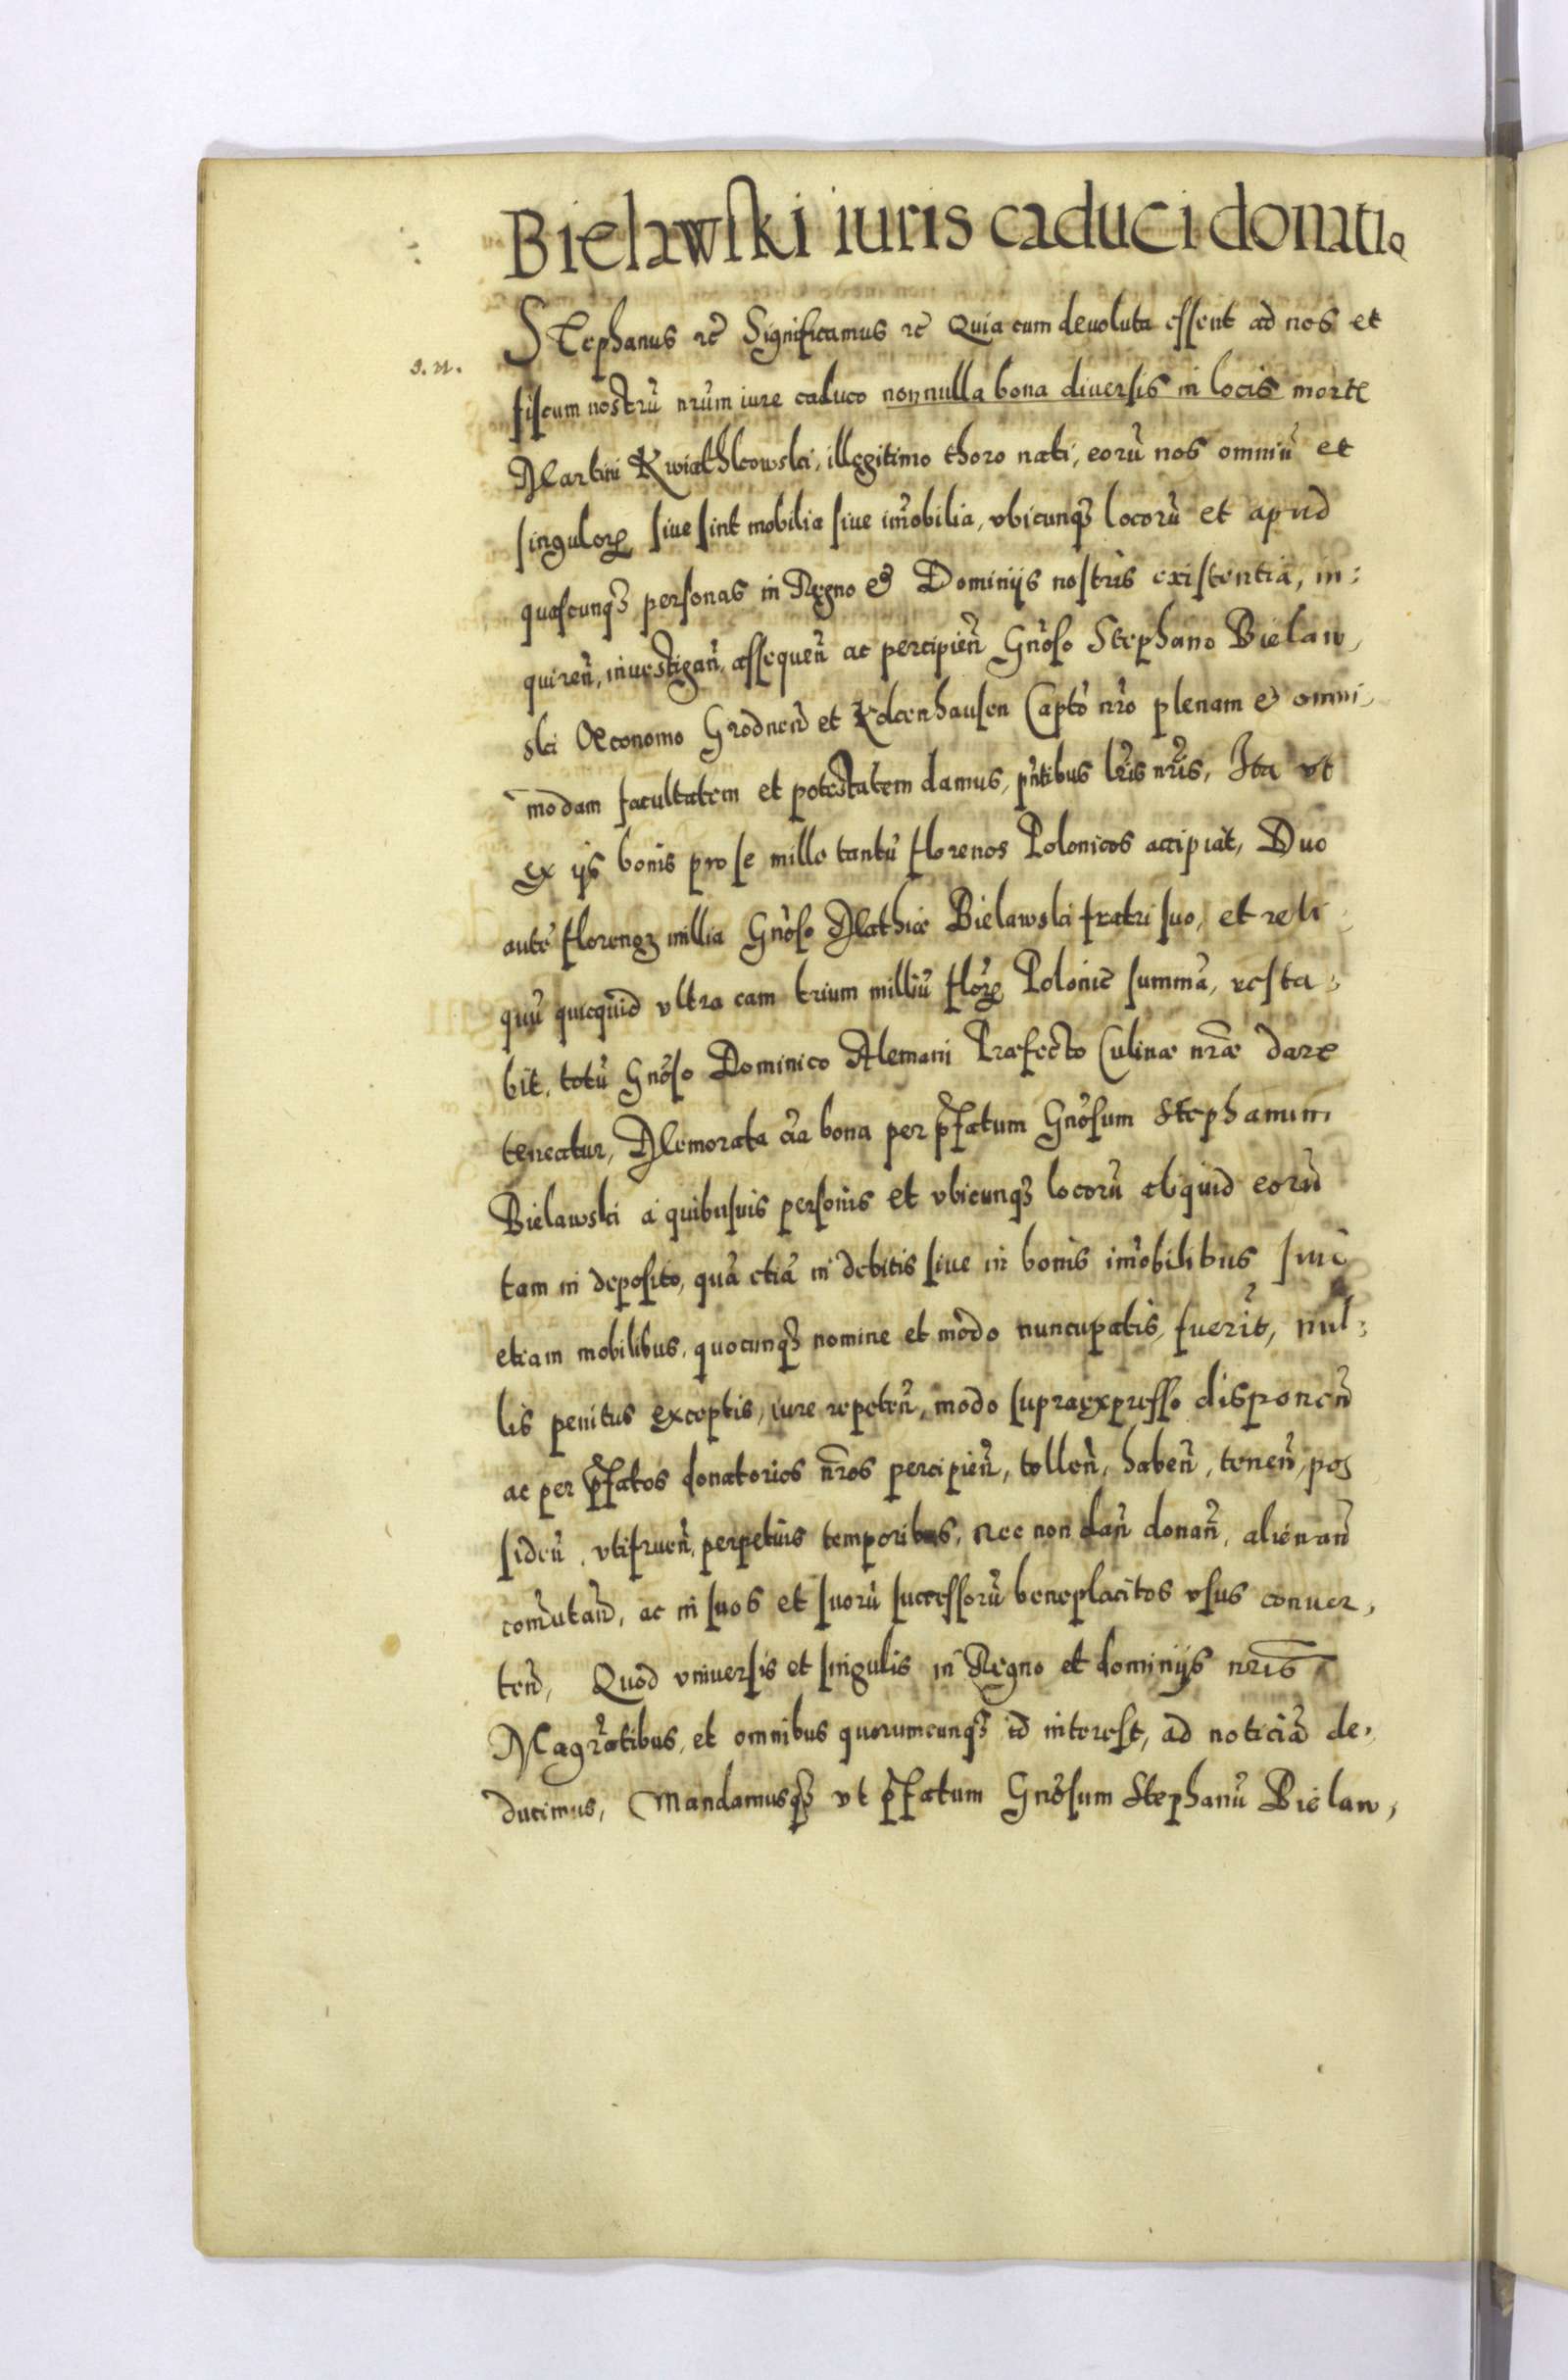 Bielawſki iuris caduci donatio
Stephanus ꝛc̃ Significamus ꝛc̃ Quia cum deuoluta eſſent ad nos et
s. n.
fiſcum nostrũ nr̃um iure caduco nonnulla bona diuerſis in locis morte
Martini Kwiathkowski, illegitimo thoro nati, eorũ nos omniũ et
ſingulorꝝ ſiue ſint mobilia ſiue im̃obilia, vbicunqꝫ locorũ et apud
quaſcunqꝫ perſonas in Regno & Dominijs noſtris exiſtentia, in:
quireñ, inuestigañ, aſſequeñ ac percipieñ Gñoſo Stephano Bielaw,
ski Œconomo Grodneñ et Kokenhauſen Capto nr̃o plenam & omni,
modam facultatem et potestatem damus, pñtibus lr̃is nr̃is, Ita vt
ex ijs bonis pro ſe mille tantũ florenos Polonicos accipiat, Duo
autẽ florenoꝝ millia Gñoſo Mathiæ Bielawski fratri ſuo, et reli,
quũ quicquid vltra eam trium milliũ florꝝ Polonic̃ summã, resta:
bit, totũ Gñoſo Dominico Alemani Præfecto Culinæ nr̃æ dare
teneatur, Memorata oĩa bona per p̃fatum Gñoſum Stephanum
Bielawski a quibuſuis perſonis et vbicunqꝫ locorũ aliquid eorũ
tam in depoſito, quã etiã in debitis ſiue in bonis im̃obilibus ſiue
etiam mobilibus, quocunqꝫ nomine et modo nuncupatis, fuerit, nul:
lis penitus exceptis, iure repeteñ, modo ſupraexpreſſo disponeñ
ac per p̃fatos donatorios nr̃os percipieñ, tolleñ, habeñ, teneñ, poſ
ſideñ, vtifrueñ, perpetuis temporibus, Nec non dañ donañ, alienañ
com̃utañ, ac in ſuos et ſuorũ ſucceſſorũ beneplacitos vſus conuer,
teñ, Quod vniuerſis et ſingulis in Regno et dominijs nr̃is
Magr̃atibus, et omnibus quorumcunqꝫ id intereſt, ad noticiã de,
ducimus, Mandamusqꝫ vt p̃fatum Gñoſum Stephanũ Bielaw,